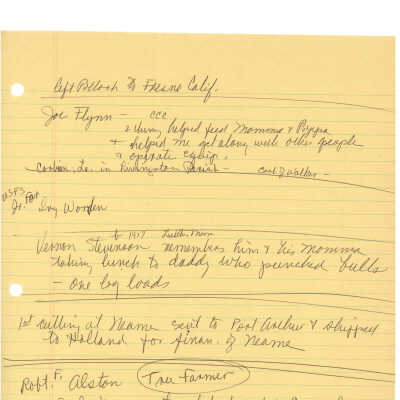 left Pollock to Fresno Calif.
Joe Flynn - CCC
& they helped feed Momma & Poppa
& helped me get along with other people
& operate equip.
Corbin, La. in Livingston Parish - Carl Walker -
USFS
Jr. For Ivy Worden
to 1917
Vernon Stevenson remembers him & his Momma
taking lunch to daddy who punched bulls
- one log loads
1st cutting at Neame sent to Port Arthur & shipped
to Holland for finan. of Neame
Robt. F. Alston Tree Farmer